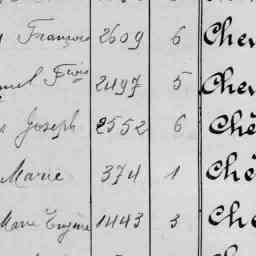 François 2609 6 Chev
2497 5 Chev
Joseph 2552 6 Chê
Marie 374 1 Chê
Marie Eugène 1443 3 Chê